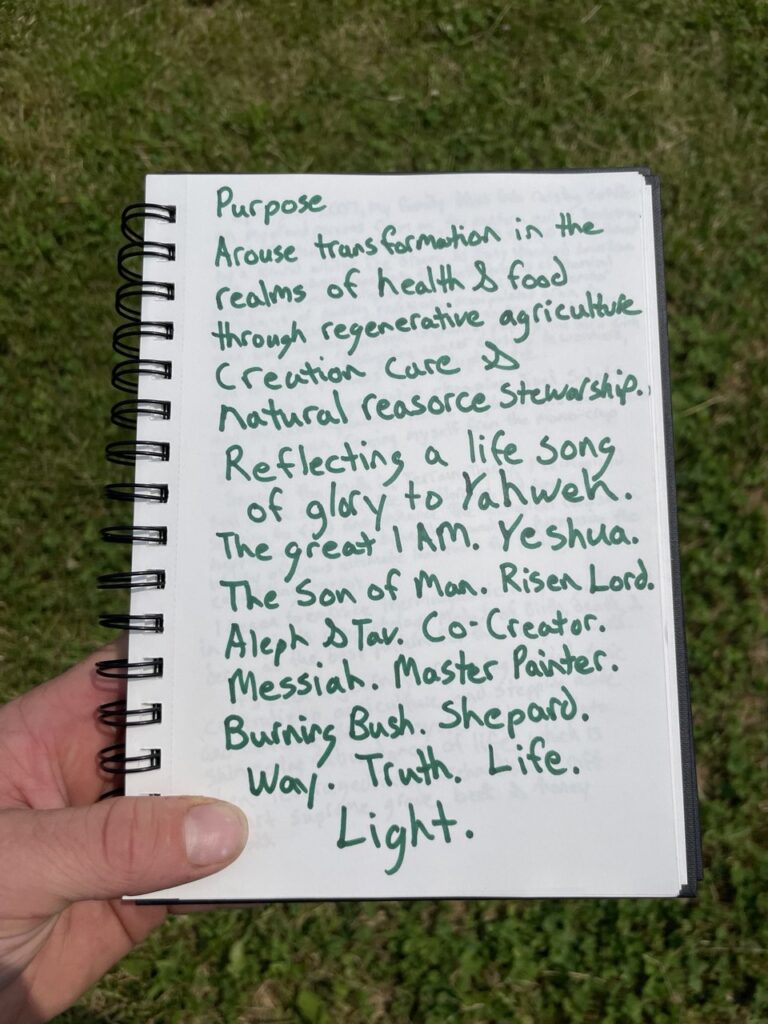 Purpose
Arouse transformation in the
realms of health & food
through regenerative agriculture
Creation care &
natural reasorce stewarship.
Reflecting a life song
of glory to Yahweh.
The great I AM. Yeshua.
The Son of Man. Risen Lord.
Aleph & Tav. Co-Creator.
Messiah. Master Painter.
Burning Bush. Shepard.
Way. Truth. Life.
Light.